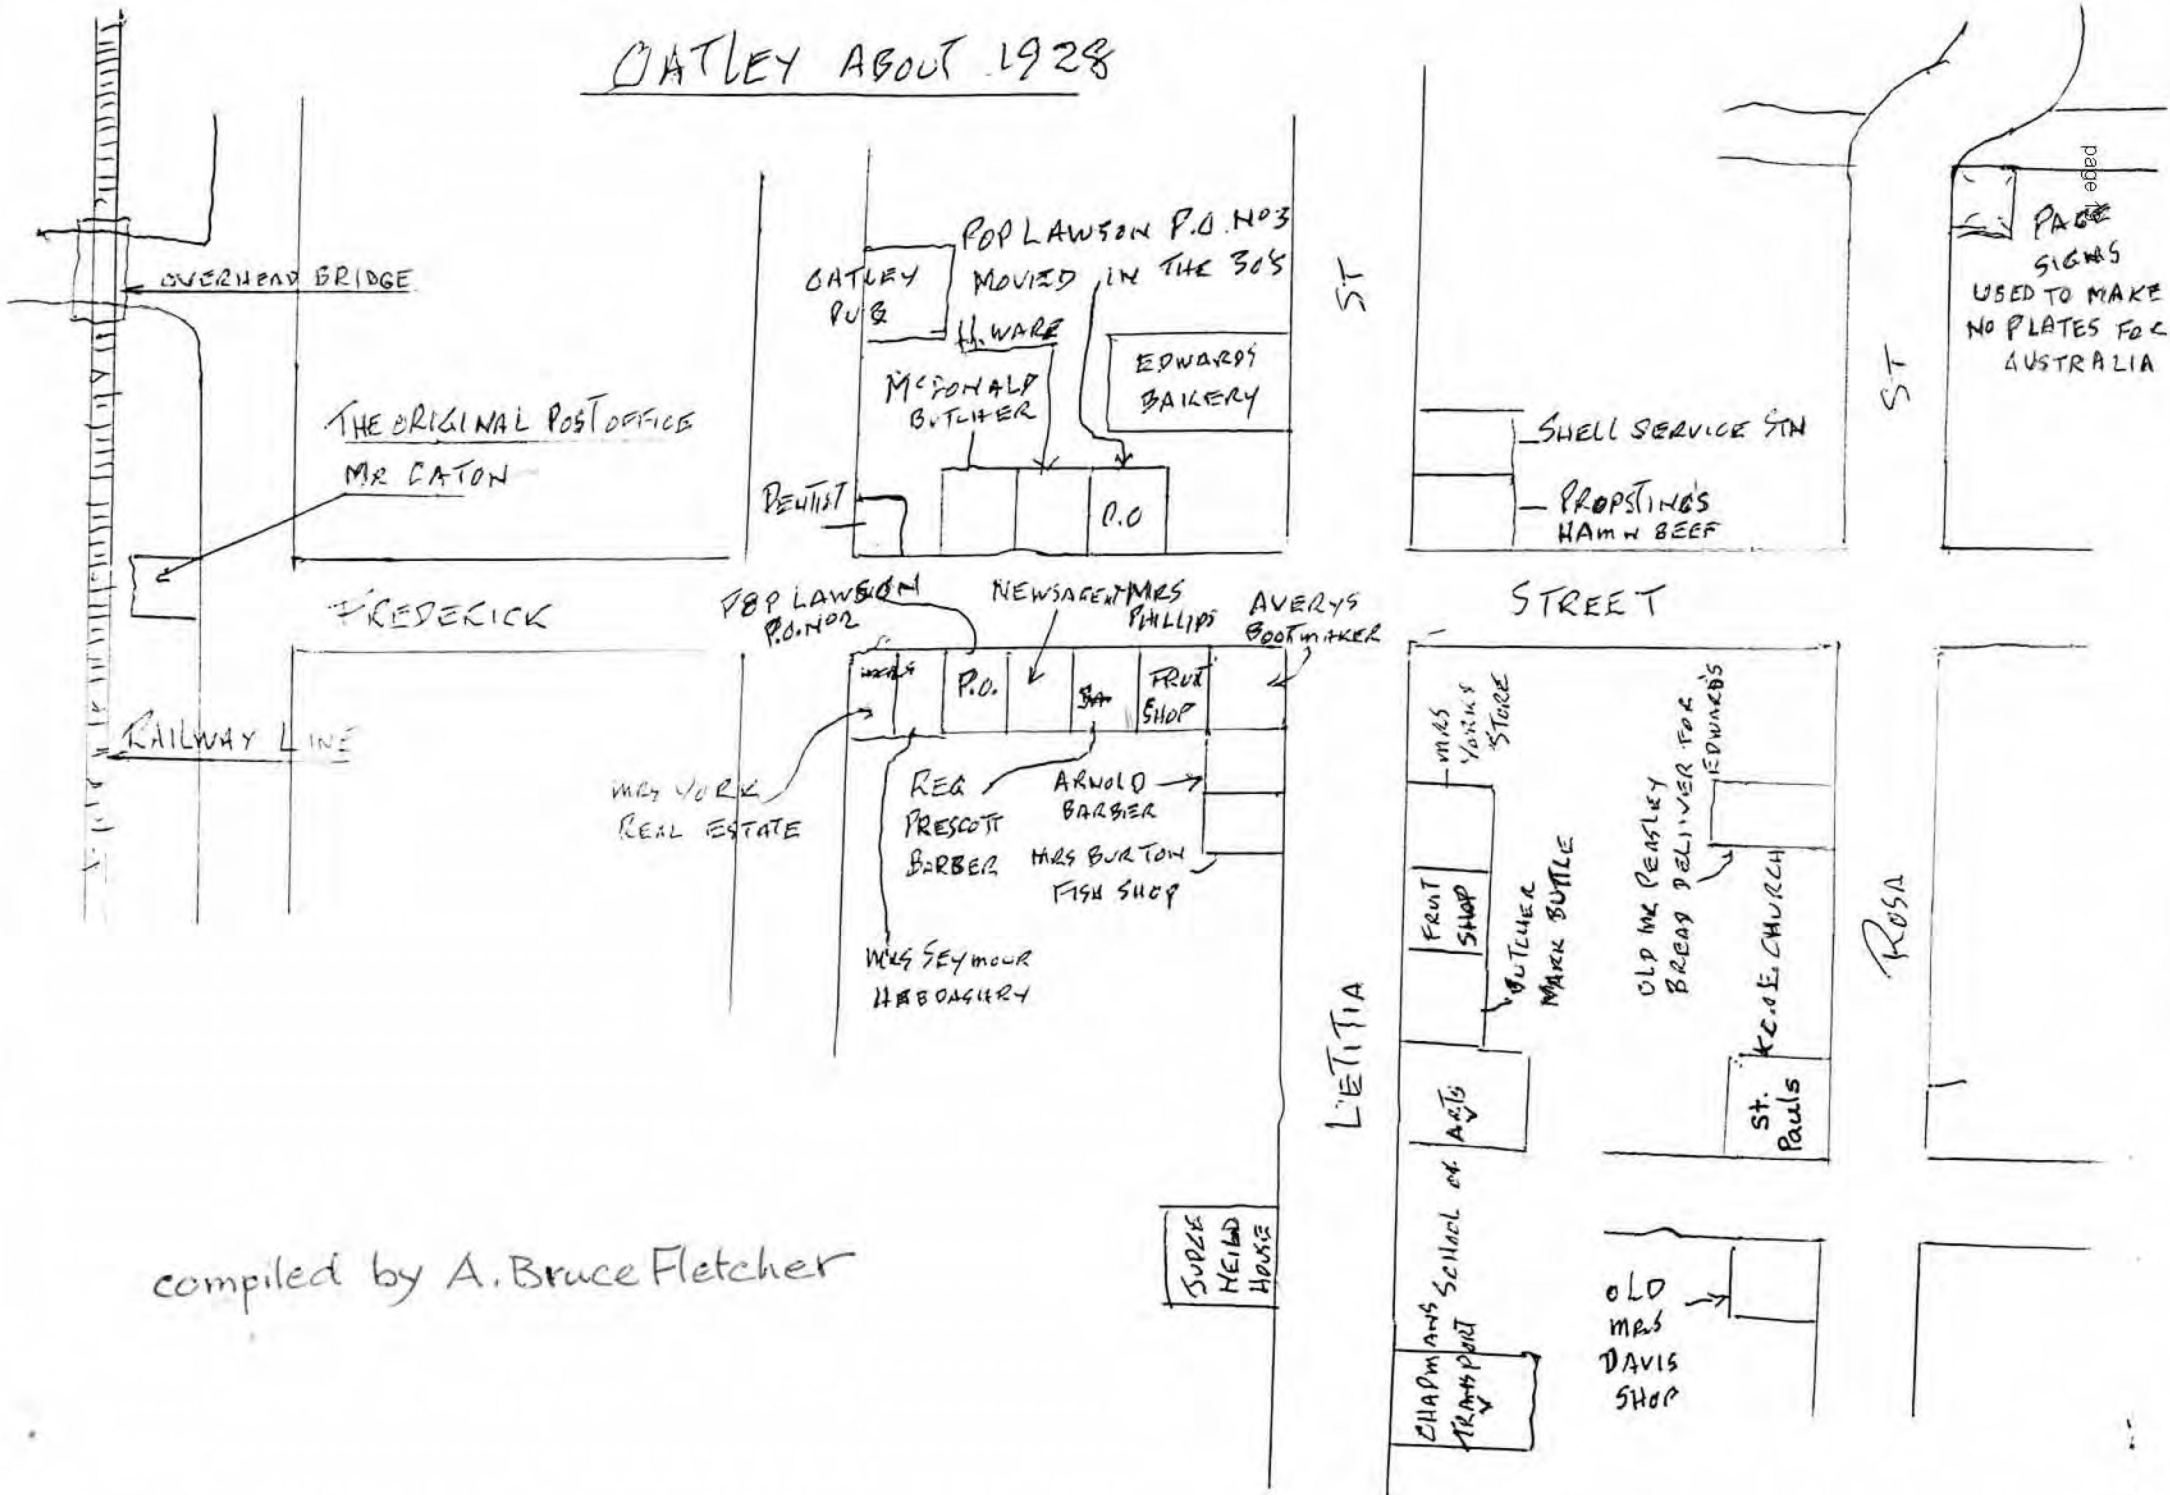 OATLEY ABOUT 1928
page
OVERHEAD BRIDGE
THE ORIGINAL POST OFFICE
MR CATON
OATLEY
PUB
POP LAWSON P.O. NO3
MOVIED IN THE 30'S
H.WARE
MCDONALD
BUTCHER
EDWARDS
BAKERY
DENTIST
P.O
ST
SHELL SERVICE STN
PROPSTING'S
HAM N BEEF
ST
PAGE
SIGNS
USED TO MAKE
NO PLATES FOR
AUSTRALIA
FREDERICK
STREET
POP LAWSON
P.O. NO2
NEWSAGENT MRS
PHILLIPS
AVERYS
BOOTMAKER
P.O.
FRUT
SHOP
RAILWAY LINE
MRS YORK
REAL ESTATE
REG
PRESCOTT
BARBER
ARNOLD
BARBIER
MRS BURTON
FISH SHOP
MRS SEYMOUR
HABDASHRY
MRS
YORKS
STORE
FRUIT
SHOP
BUTCHER
MARK BUTTLE
OLD MR PEASLEY
BREAD DELIVER FOR
EDWARDS
C.of E. CHURCH
St.
Pauls
ROSA
LETITIA
SCHOOL OF ARTS
JUDGE
HEILD
HOUSE
CHAPMANS
TRANSPORT
OLD
MRS
DAVIS
SHOP
compiled by A. Bruce Fletcher